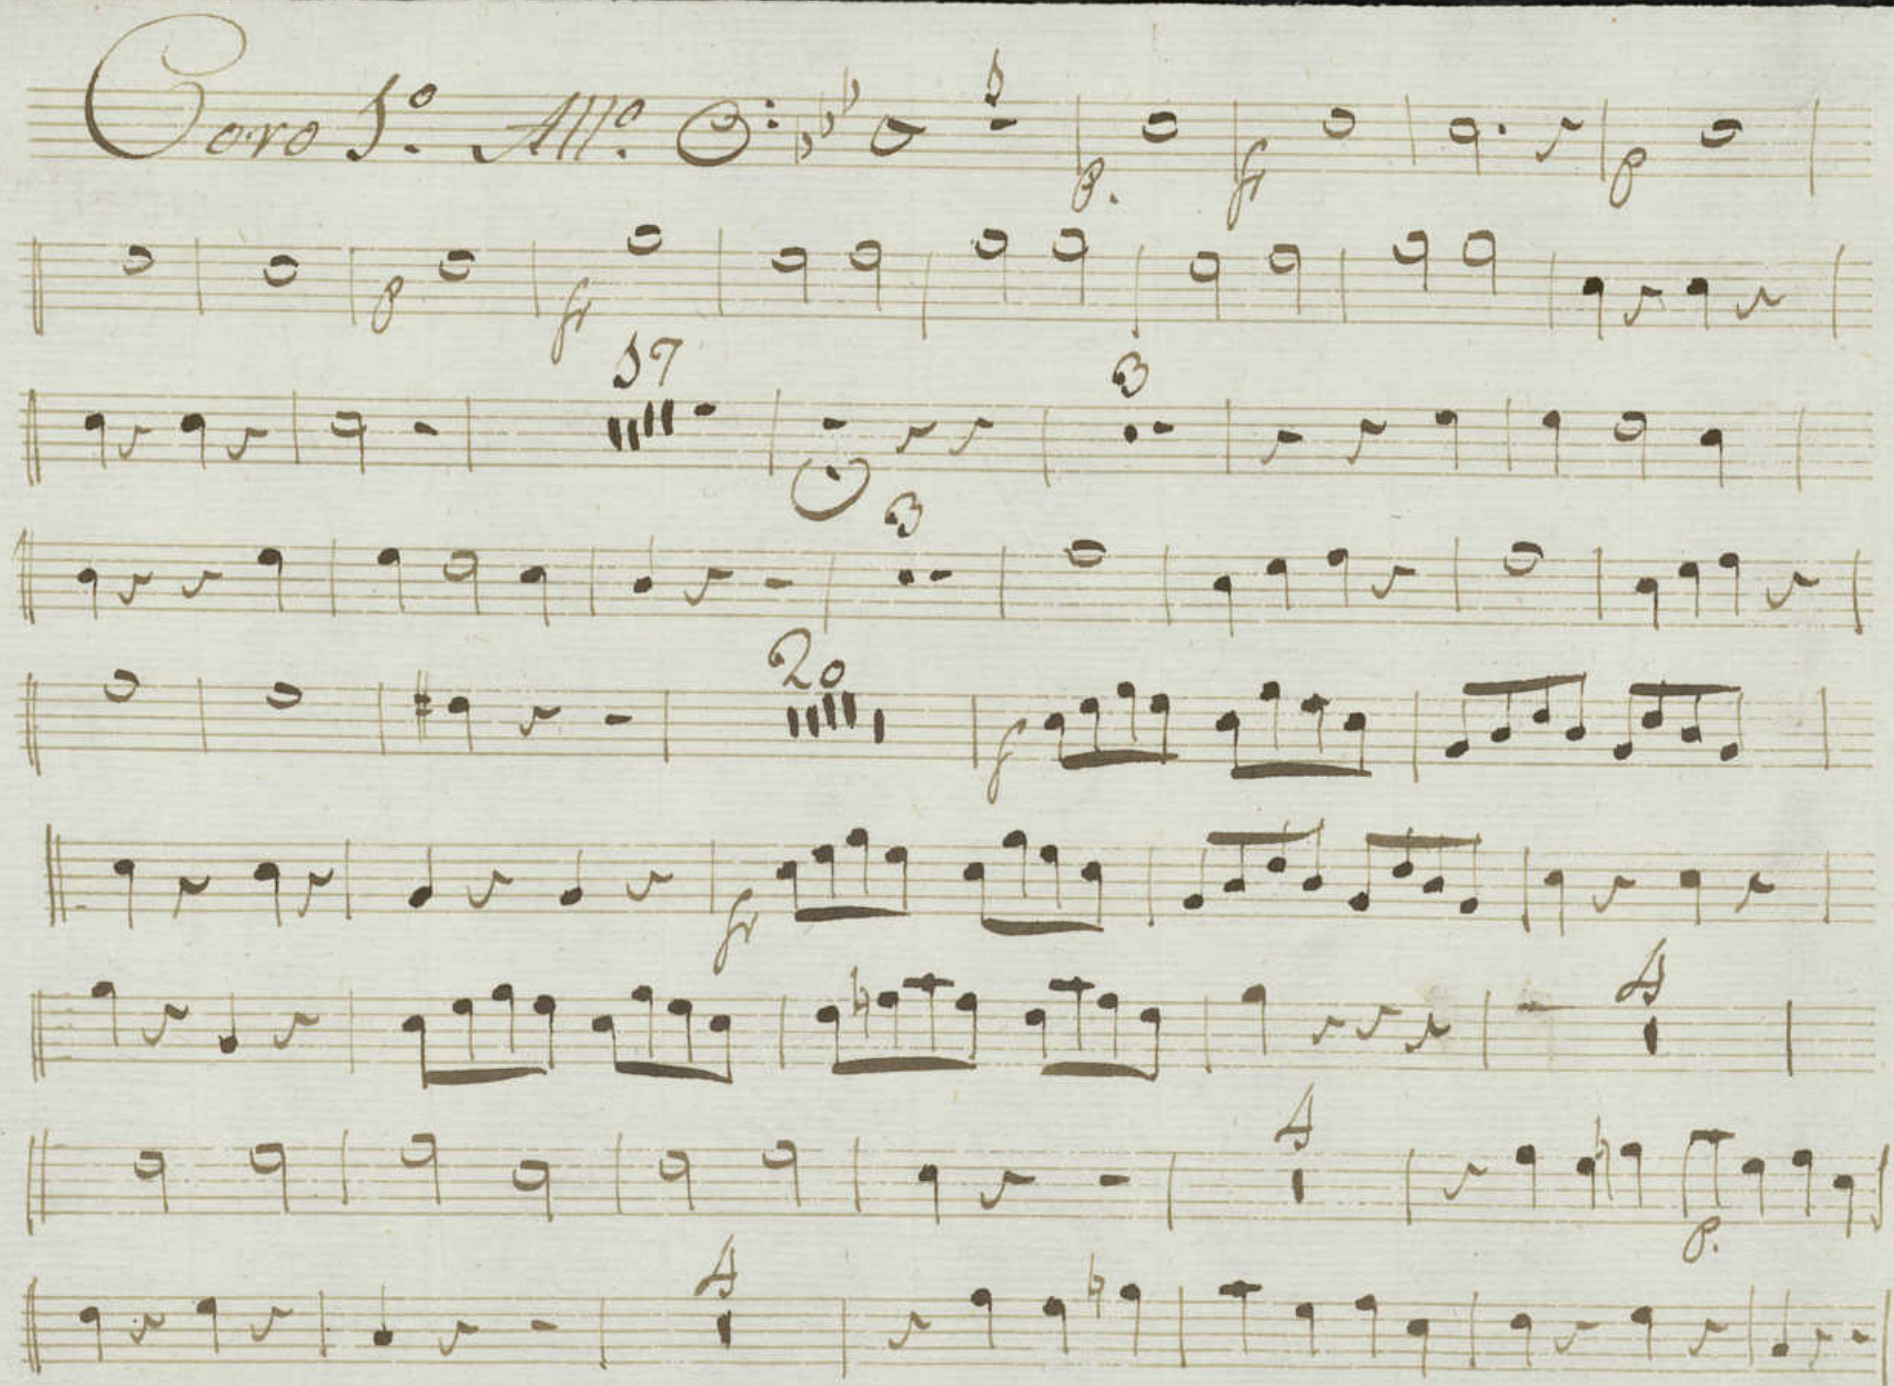 Coro 1º. Allº. 1
p. fr p
p fr
17
3
3
20
f
fr
4
4
p.
4